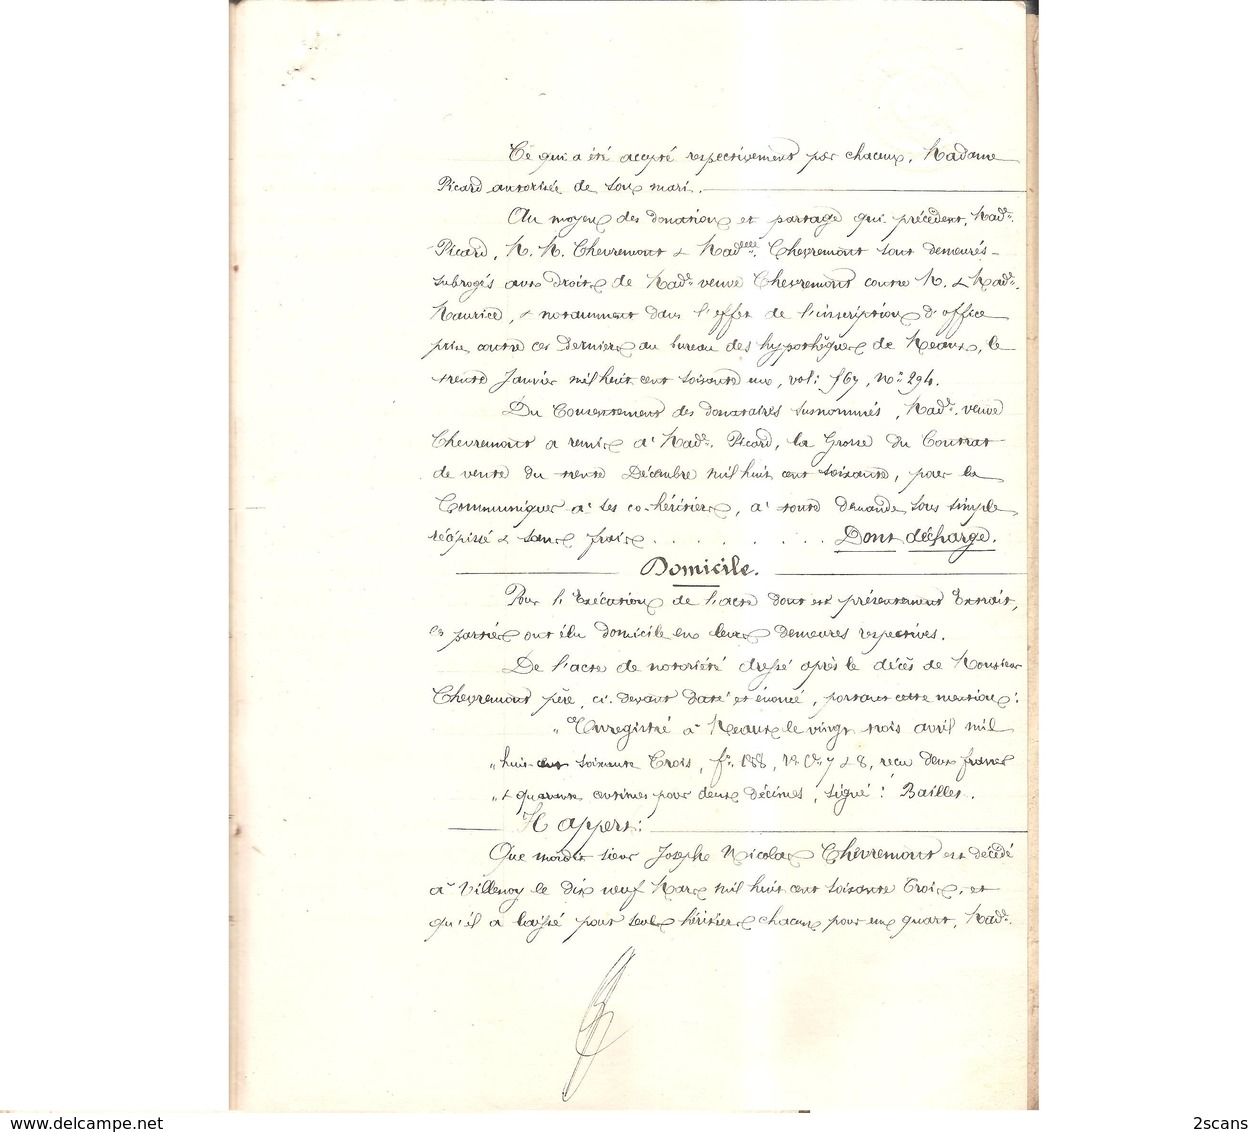 Ce qui a été accepté respectivement par chacun, Madame
Picard autorisée de son mari.
Au moyen des donation et partage qui précèdent, Made
Picard, M. M. Chevremont & Madelle Chevremont sont demeurés
subrogés aux droits de Made veuve Chevremont contre M. & Made
Maurice, & notamment dans l'effet de l'inscription d'office
prise contre ces derniers au bureau des hypothèques de Meaux, le
trente Janvier mil huit cent soixante un, vol: 567, No 294.
Du Consentement des donataires susnommés, Made veuve
Chevremont a remis à Made Picard, la Grosse du Contrat
de vente du trente Décembre mil huit cent soixante, pour la
Communiquer à ses co-héritiers, à toute demande sous simple
récépissé & sans frais . . . . . . . Dont décharge.
Domicile.
Pour l'Exécution de l'acte dont est présentement Extrait,
les parties ont élu domicile en leurs demeures respectives.
De l'acte de notoriété dressé après le décès de Monsieur
Chevremont père, ci-devant daté et énoncé, portant cette mention:
"Enregistré à Meaux le vingt trois avril mil
"huit cent soixante Trois, fo 188, Ro Ces 7 & 8, reçu deux francs
"& quarante centimes pour deux décimes, signé: Bailles.
Il appert:
Que mondit sieur Joseph Nicolas Chevremont est décédé
à Villenoy le dix neuf Mars mil huit cent soixante Trois, et
qu'il a laissé pour seuls héritiers chacun pour un quart, Made
www.delcampe.net
2scans